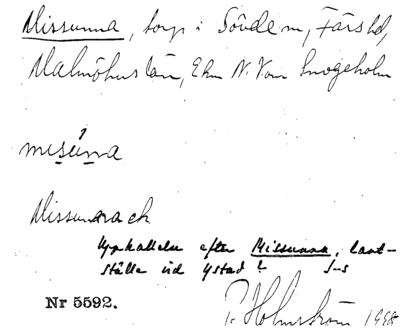 Missunna, torp i Sövde sn, Färs hd,
Malmöhus län, Ekn N. V om Snogeholm
misúna
Missunna ek
Uppkallelse efter Missunna, lant-
ställe vid Ystad? J-s
Nr 5592.
P. Holmström 1998